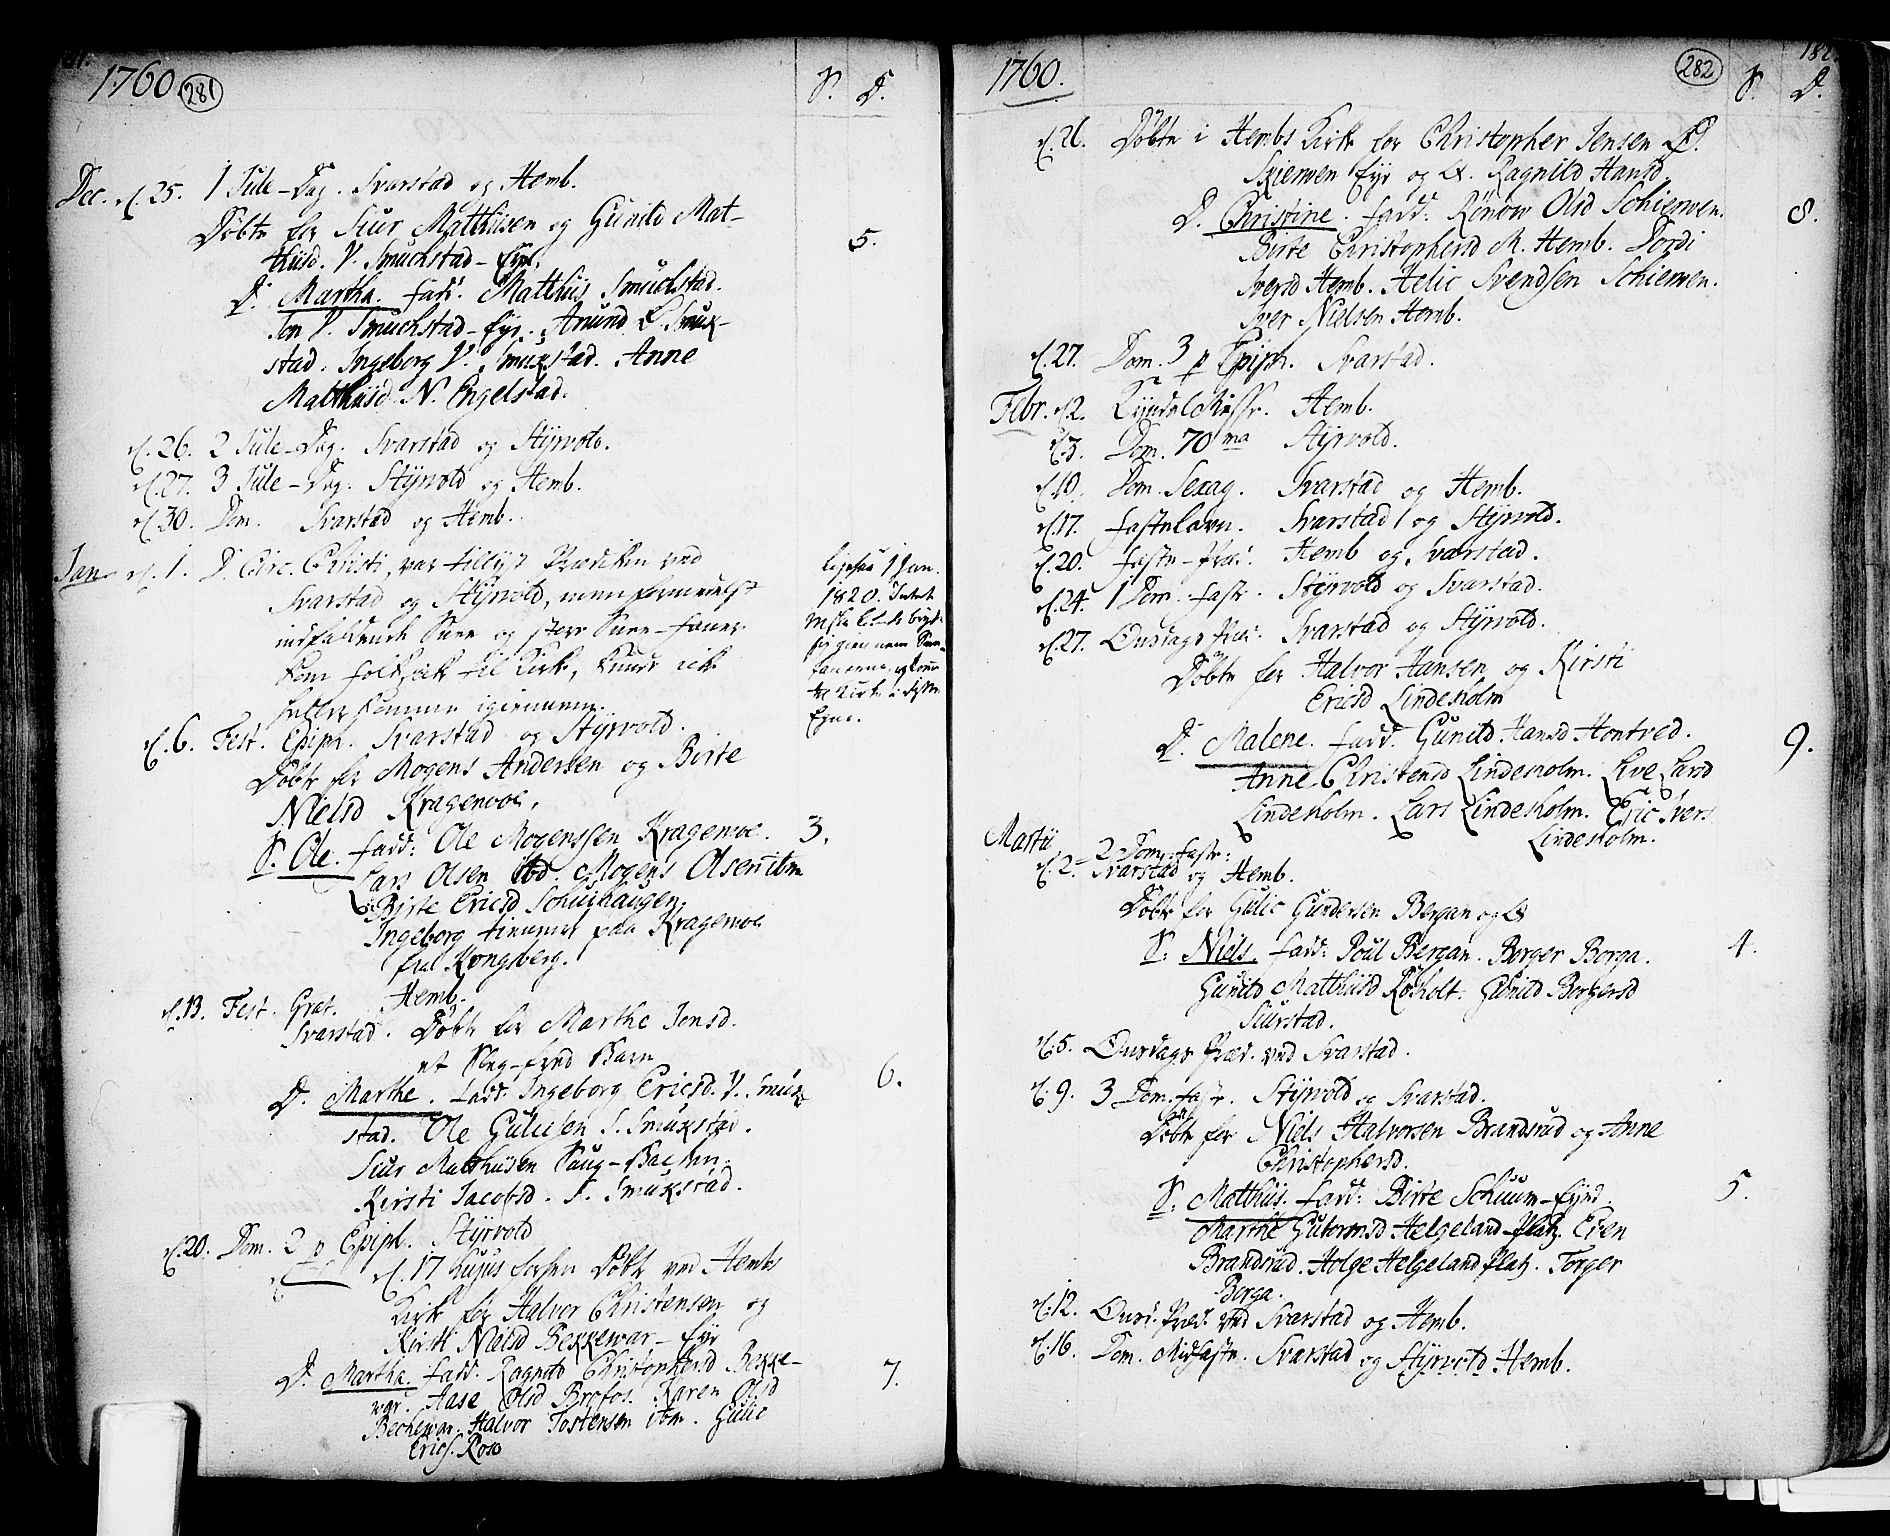 1760. 281 S. D.
Dec. d. 25. 1 Jule-Dag. Svarstad og Hemb.
Døbte for Siur Matthisen og Gunild Mat-
thisd. V. Smuchstad-Eye. 5.
D. Martha. Fadd. Matthis Smuchstad.
Jon V. Smuchstad-Eye. Anund Smuk-
stad. Ingeborg V. Smukstad. Anne
Matthisd. N. Engelstad.
d. 26. 2 Jule-Dag. Svarstad og Styrvold.
d. 27. 3 Jule-Dag. Styrvold og Hemb.
d. 30. Dom. Svarstad og Hemb.
Jan. d. 1. D. Circ. Christi, var tillyst Prædiken ved
Svarstad og Styrvold, men formedelst
indfaldende Snee og stoer Snee-
kom folk ik til Kirke, kunde ick
heller komme igiennem.
ligesaa 1 Jan.
1820.
d. 6. Fest. Epiph. Svarstad og Styrvold.
Døbt for Mogens Andersen og Birte
Nielsd Kragemoe.
S. Ole. Fadd: Ole Mogenssen Kragemoe. 3.
Lars Olsen ibd. Mogens Olsen ibm
Birte Ericsd Schuihaugen.
Ingeborg tienende paa Kragemoe
fra Kongsberg.
d. 13. Fest. Grat. Hemb.
Svarstad. Døbt for Marthe Jensd.
et Barn
D. Marthe. Fadd: Ingeborg Ericsd. V. Smuk- 6.
stad. Ole Gulicsen S. Smukstad.
Siur Matthisen Saug-Backen.
Kirsti Jacobsd. S. Smukstad.
d. 20. Dom. 2 p Epiph. Styrvold
d. 17 hujus forhen Døbt ved Hembs
Kirke for Halvor Christensen og
Kirsti Nielsd Bekkevar-Eye
D. Martha. Fadd. Ragnild Christophersd Bekke- 7.
var. Aase Olsd Brofos. Karen Olsd
Bechevar. Halvor Tostensen ibm. Gulic
Erics. Roe
1760. 282 S. D.
d. 26. Døbte i Hembs Kirke for Christopher Jensen
Skierven Eye og Ragnild Hansd.
D. Christine. Fadd: Rønow Olsd Schierven. 8.
Birte Christophersd M. Hemb. Dordi
Iversd Hemb. Helic Svendsen Schierven.
Iver Nielsen Hemb.
d. 27. Dom. 3 p Epiph. Svarstad.
Febr. d. 2. Kyndelmisse. Hemb.
d. 3. Dom. 70 ma Styrvold.
d. 10. Dom. Sexag. Svarstad og Hemb.
d. 17. Fastelavn. Svarstad og Styrvold.
d. 20. Faste-Præd. Hemb og Svarstad.
d. 24. 1 Dom. Faste. Styrvold og Svarstad.
d. 27. Onsdags Præd. Svarstad og Styrvold.
Døbte for Halvor Hansen og Kirsti
Ericsd Lindeholm
D. Malene. Fadd. Gunild Hansd Hontved. 9.
Anne Christensd Lindeholm. Live Larsd
Lindeholm. Lars Lindeholm. Eric Ivers.
Lindeholm.
Martii
d. 2. 2 Dom. Faste:
Svarstad og Hemb.
Døbt for Gulic Gundersen Bergan og
S. Niels. Fadd: Poul Bergan. Borger Borga. 4.
Gunild Matthisd Røsholt. Gunild Borgersd
Siurstad.
d. 5. Onsdags Præd. ved Svarstad.
d. 9. 3 Dom. Faste. Styrvold og Svarstad.
Døbt for Niels Halvorsen Brandsrud og Anne
Christophersd.
S. Matthis. Fadd: Birte Schuum-Eye. 5.
Marthe Gutormsd Helgeland-Platz. Even
Brandsrud. Holge Helgeland platz. Torger
Borga.
d. 12. Onsd. Præd. ved Svarstad og Hemb.
d. 16. Dom. Midfaste. Svarstad og Styrvold Hemb.